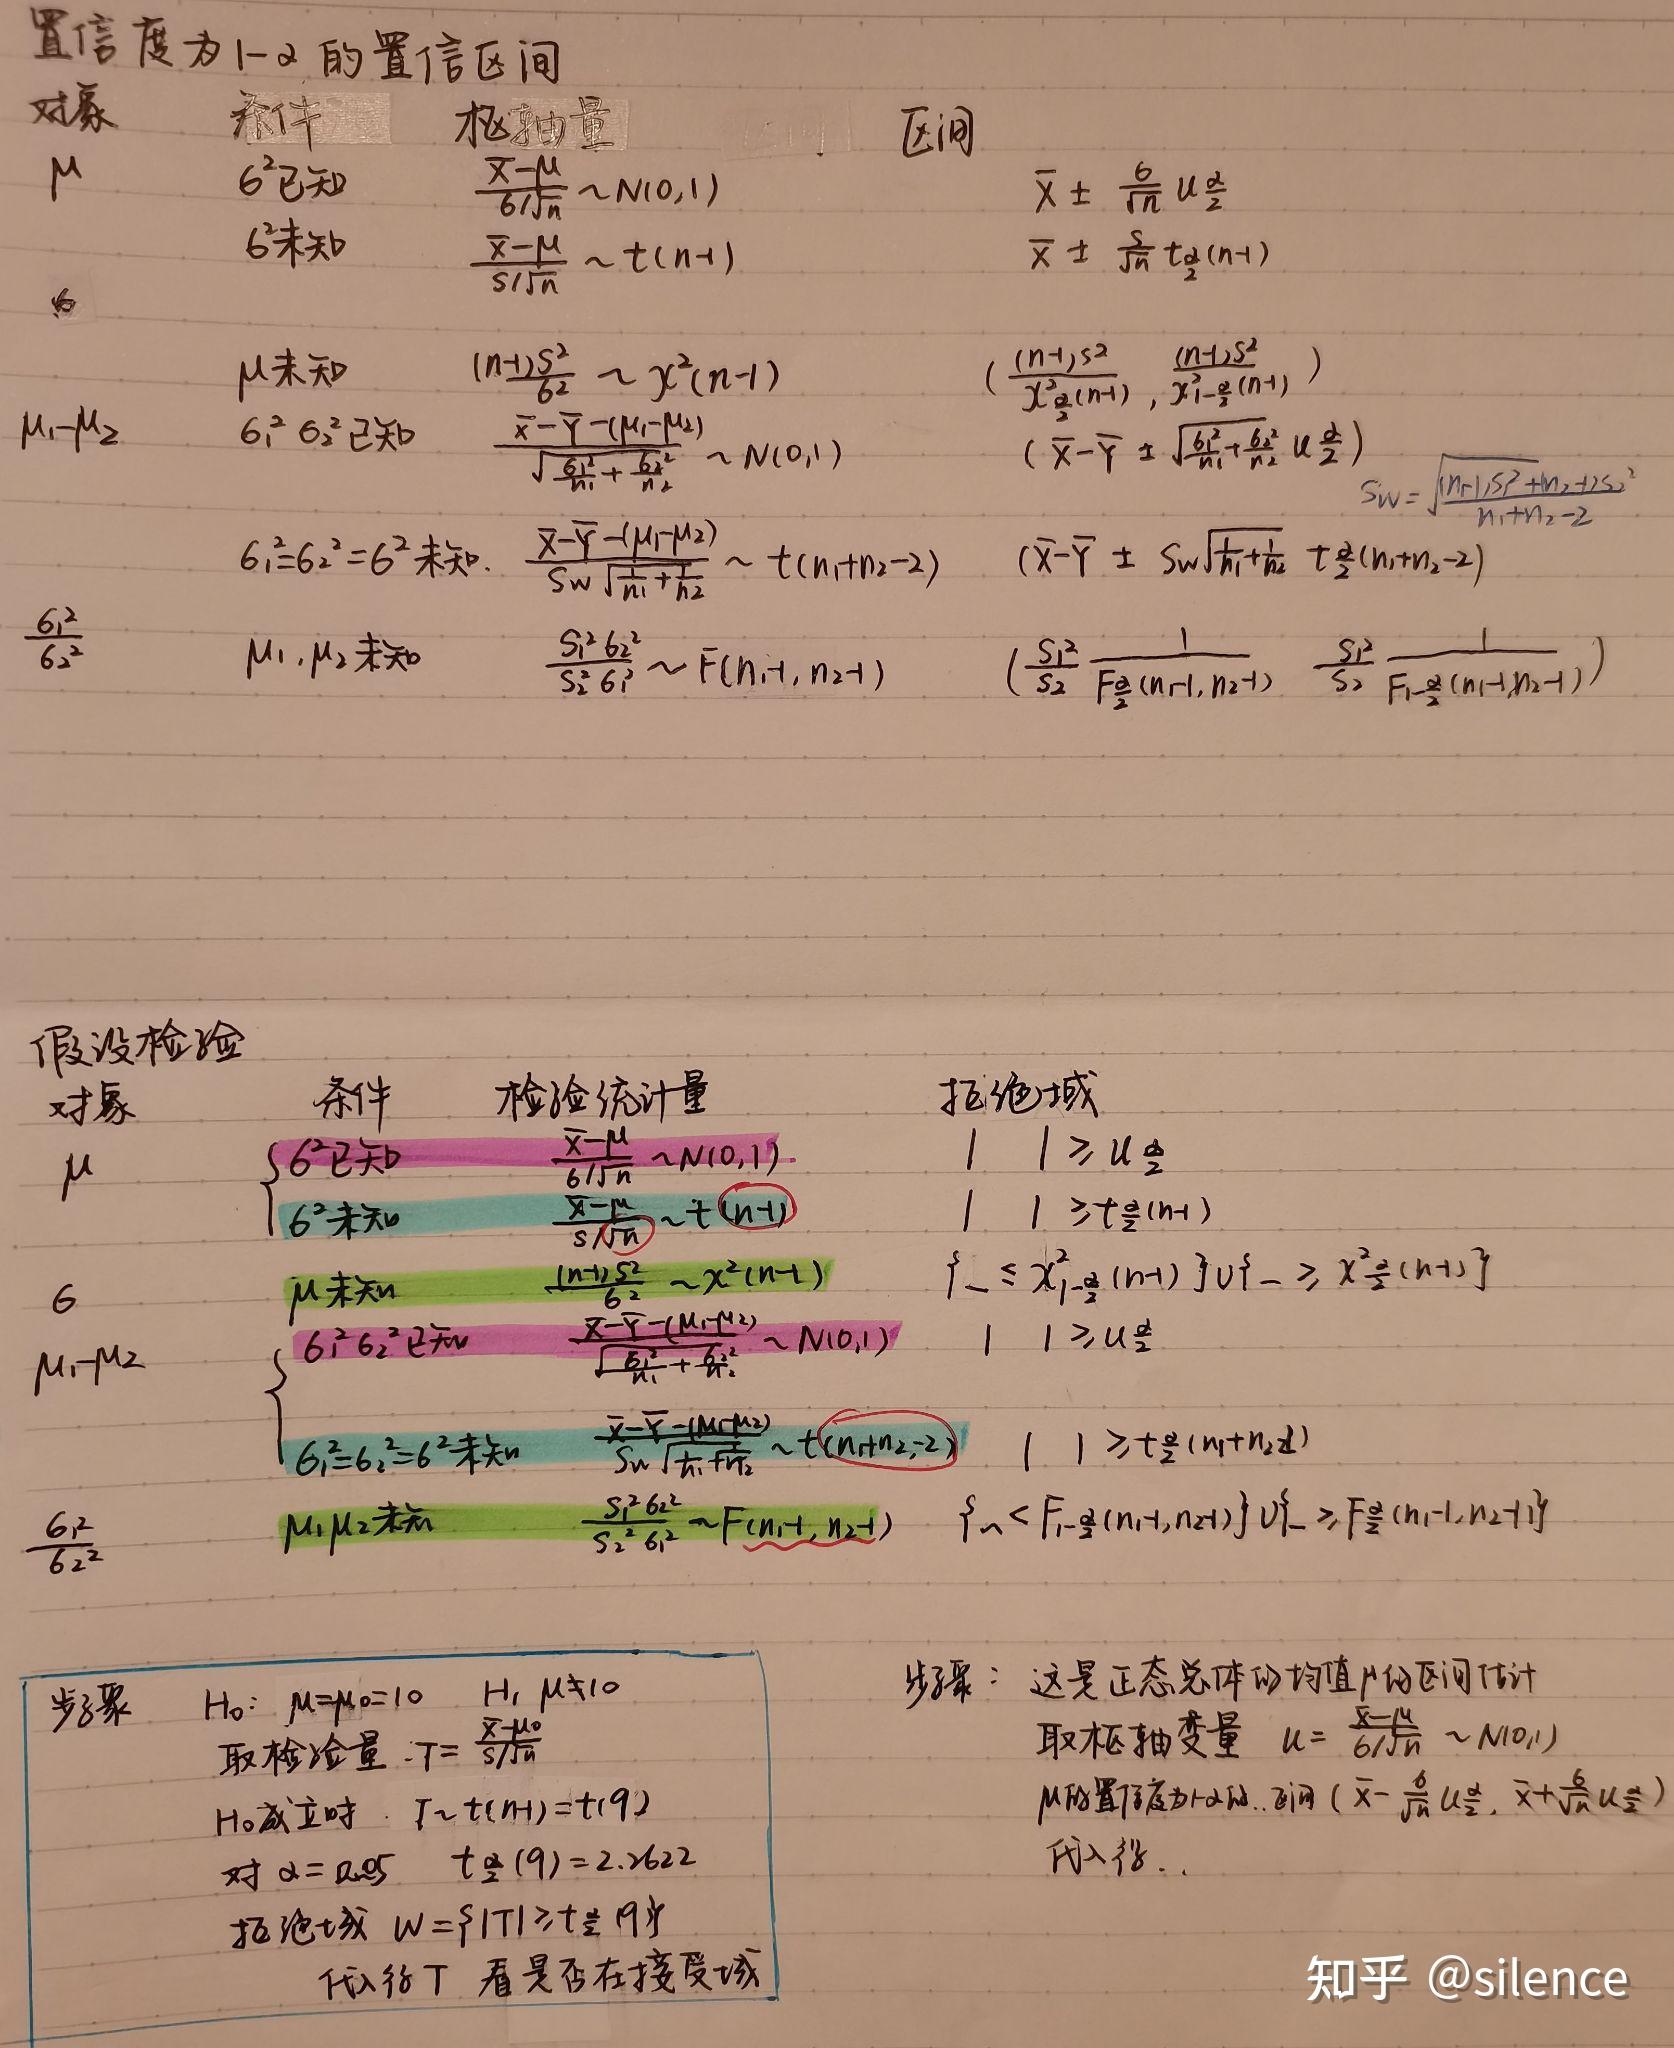 置信度为1-α的置信区间
对象 条件 枢轴量 区间
μ σ²已知 (X̄-μ)/(σ/√n) ~N(0,1) X̄ ± σ/√n u_{α/2}
σ²未知 (X̄-μ)/(S/√n) ~ t(n-1) X̄ ± S/√n t_{α/2}(n-1)
σ
μ未知 (n-1)S²/σ² ~ χ²(n-1) ( (n-1)S²/χ²_{α/2}(n-1) , (n-1)S²/χ²_{1-α/2}(n-1) )
μ₁-μ₂ σ₁² σ₂²已知 (X̄-Ȳ-(μ₁-μ₂))/√(σ₁²/n₁+σ₂²/n₂) ~N(0,1) (X̄-Ȳ ± √(σ₁²/n₁+σ₂²/n₂) u_{α/2})
Sw=√(((n₁-1)S₁²+(n₂-1)S₂²)/(n₁+n₂-2))
σ₁²=σ₂²=σ²未知. (X̄-Ȳ-(μ₁-μ₂))/(Sw√(1/n₁+1/n₂)) ~ t(n₁+n₂-2) (X̄-Ȳ ± Sw√(1/n₁+1/n₂) t_{α/2}(n₁+n₂-2)
σ₁²/σ₂² μ₁,μ₂未知 S₁²σ₂²/S₂²σ₁² ~ F(n₁-1, n₂-1) (S₁²/S₂ 1/F_{α/2}(n₁-1, n₂-1) S₁²/S₂ 1/F_{1-α/2}(n₁-1, n₂-1))
假设检验
对象 条件 检验统计量 拒绝域
μ {σ²已知 (X̄-μ)/(σ/√n) ~N(0,1). | | ≥ u_{α/2}
σ²未知 (X̄-μ)/(S/√n) ~ t(n-1) | | ≥ t_{α/2}(n-1)
σ μ未知 (n-1)S²/σ² ~χ²(n-1) {_ ≤ χ²_{1-α/2}(n-1)}∪{_ ≥ χ²_{α/2}(n-1)}
μ₁-μ₂ {σ₁² σ₂²已知 (X̄-Ȳ-(μ₁-μ₂))/√(σ₁²/n₁+σ₂²/n₂) ~ N(0,1) | | ≥ u_{α/2}
σ₁²=σ₂²=σ²未知 (X̄-Ȳ-(μ₁-μ₂))/(Sw√(1/n₁+1/n₂)) ~t(n₁+n₂-2) | | ≥ t_{α/2}(n₁+n₂-2)
σ₁²/σ₂² μ₁μ₂未知 S₁²σ₂²/S₂²σ₁² ~F(n₁-1, n₂-1) {_ < F_{1-α/2}(n₁-1, n₂-1)}∪{_ ≥ F_{α/2}(n₁-1, n₂-1)}
步骤 H₀: μ=μ₀=10 H₁ μ≠10
取检验量 T=(X̄-μ₀)/(S/√n)
H₀成立时. T~t(n-1)=t(9)
对α=0.05 t_{α/2}(9)=2.2622
拒绝域 W={|T|≥t_{α/2}(9)}
代入得T 看是否在接受域
步骤: 这是正态总体的均值μ的区间估计
取枢轴变量 u=(X̄-μ)/(σ/√n) ~N(0,1)
μ的置信度为1-α的..区间(X̄-σ/√n u_{α/2}, X̄+σ/√n u_{α/2})
代入得..
知乎 @silence